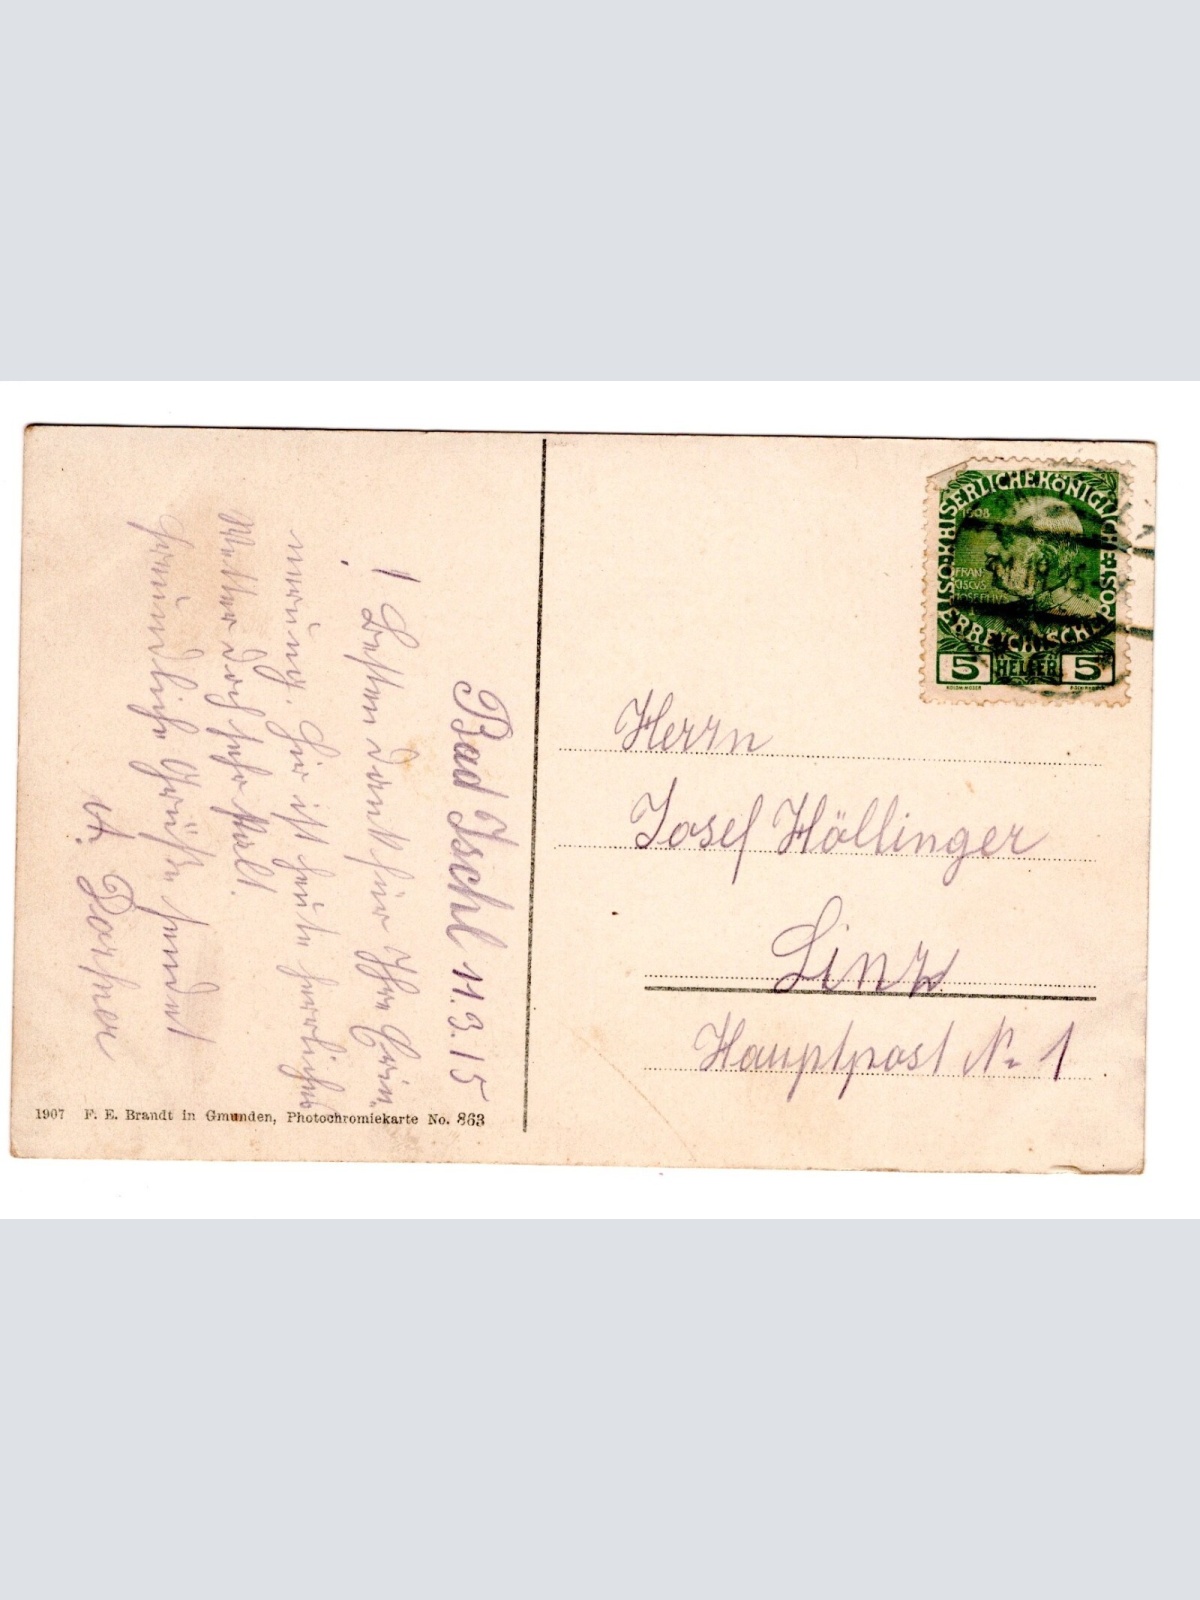 Bad Ischl 11.3.15
! Besten Dank für Ihre Erin„
nerung. Hier ist heute herrliches
Wetter doch sehr kalt.
Freundliche Grüße sendet
A.
Herrn
Josef Höllinger
Linz
Hauptpost No 1
KAISERLICHE KÖNIGLICHE ÖSTERREICHISCHE
1908
FRAN
CISCVS
IOSEPHVS
5 HELLER 5
1907 F. E. Brandt in Gmunden, Photochromiekarte No. 863